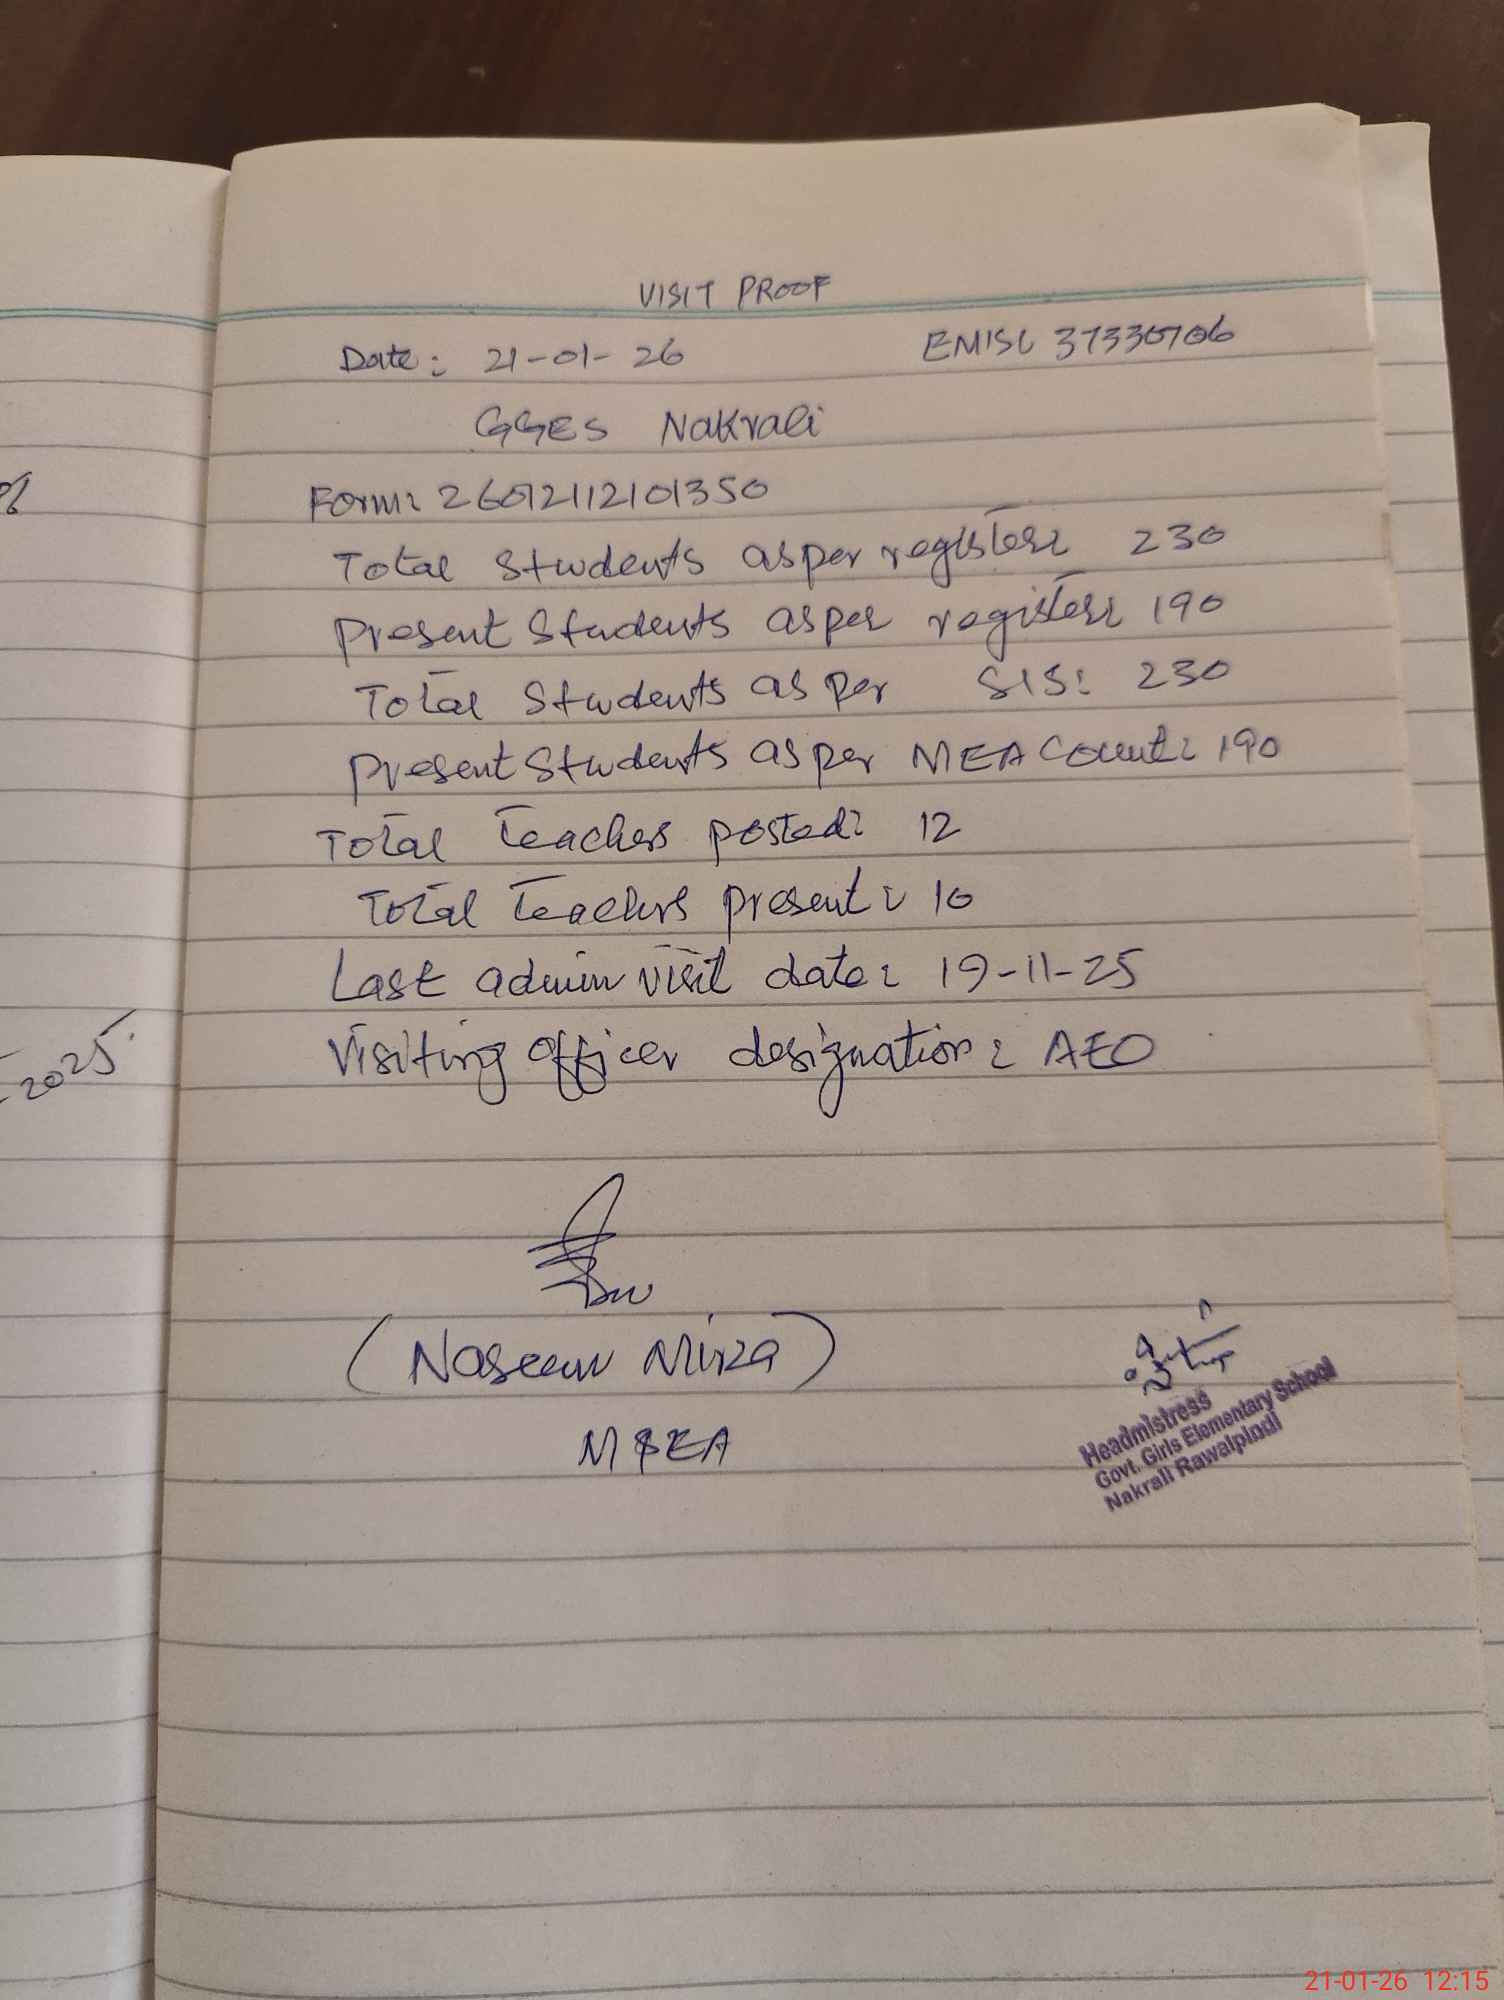 VISIT PROOF
Date: 21-01-26 EMIS: 37330706
GGES Nakrali
Form: 26012112101350
Total Students as per register: 230
Present Students as per register: 190
Total Students as per SIS: 230
Present Students as per MEA Count: 190
Total Teachers posted: 12
Total Teachers present: 10
Last admin visit date: 19-11-25
Visiting officer designation: AEO
(Naseem Mirza)
MEA
Headmistress
Govt. Girls Elementary School
Nakrali Rawalpindi
2025
21-01-26 12:15